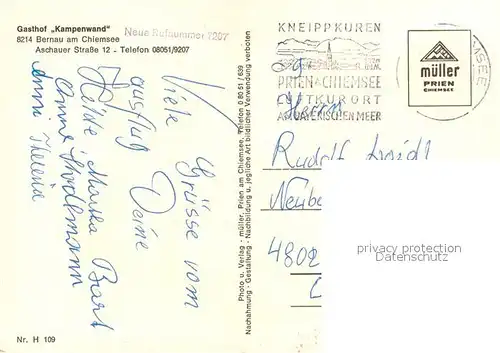 Gasthof „Kampenwand"
8214 Bernau am Chiemsee
Aschauer Straße 12 - Telefon 08051/9207
Neue Rufnummer 7207
Viele Grüsse vom
ausflug Deine
Heide Marika Bart
Anni Theresia
Nr. H 109
Photo u. Verlag - müller, Prien am Chiemsee, Telefon 0 80 51 / 639
Nachahmung - Gestaltung - Nachbildung u. jegliche Art bildlicher Verwendung verboten
KNEIPPKUREN
PRIEN A. CHIEMSEE
LUFTKURORT
AM BAYERISCHEN MEER
müller
PRIEN
CHIEMSEE
MSEE
Herrn
Rudolf
Neube
4802
privacy protection
oldthing.de